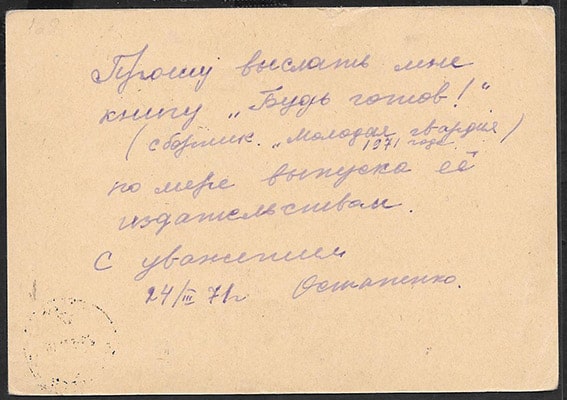 Прошу выслать мне
книгу „Будь готов!“
(сборник „Молодая гвардия)
1971 года
по мере выпуска её
издательством.
С уважением
24/III 71г Остапенко.